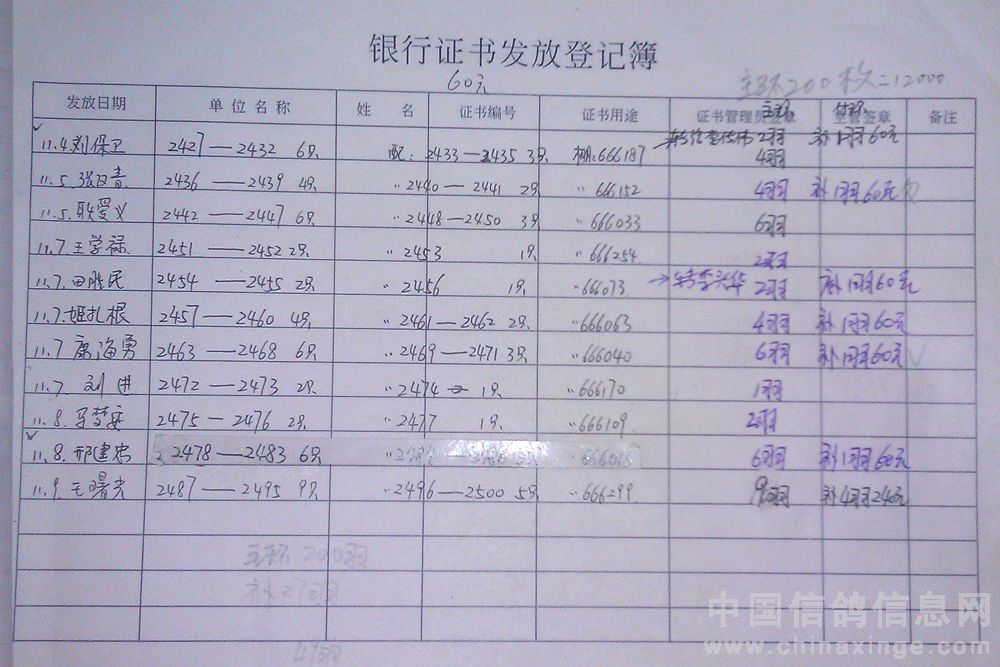 银行证书发放登记簿
60元 主环200枚=12000
发放日期 单位名称 姓名 证书编号 证书用途 证书管理员 章 主环 签章 备注
11.4.刘保卫 2427——2432 6只 配:2433—2435 3只 棚:666187 2羽 补1羽60元
4羽
11.5.张汉青 2436——2439 4只 〃2440—2441 2只 〃666152 4羽 补1羽60元
11.5.耿爱义 2442——2447 6只 〃2448—2450 3只 〃666033 6羽
11.7.王学禄 2451——2452 2只 〃2453 1只 〃666254 2羽
11.7.田胜民 2454——2455 2只 〃2456 1只 〃666073 →转李兴华 2羽 补1羽60元
11.7.姬扎根 2457——2460 4只 〃2461—2462 2只 〃666063 4羽 补1羽60元
11.7 康海勇 2463——2468 6只 〃2469—2471 3只 〃666040 6羽 补1羽60元
11.7. 刘进 2472——2473 2只 〃2474 1只 〃666170 1羽
11.8.马梦安 2475—2476 2只 〃2477 1只 〃666109 2羽
11.8.邢建忠 2478——2483 6只 6羽 补1羽60元
11.9.王曙光 2487——2495 9只 〃2496—2500 5只 〃666299 9羽 补4羽240元
主环200羽
补27羽
中国信鸽信息网
www.chinaxinge.com